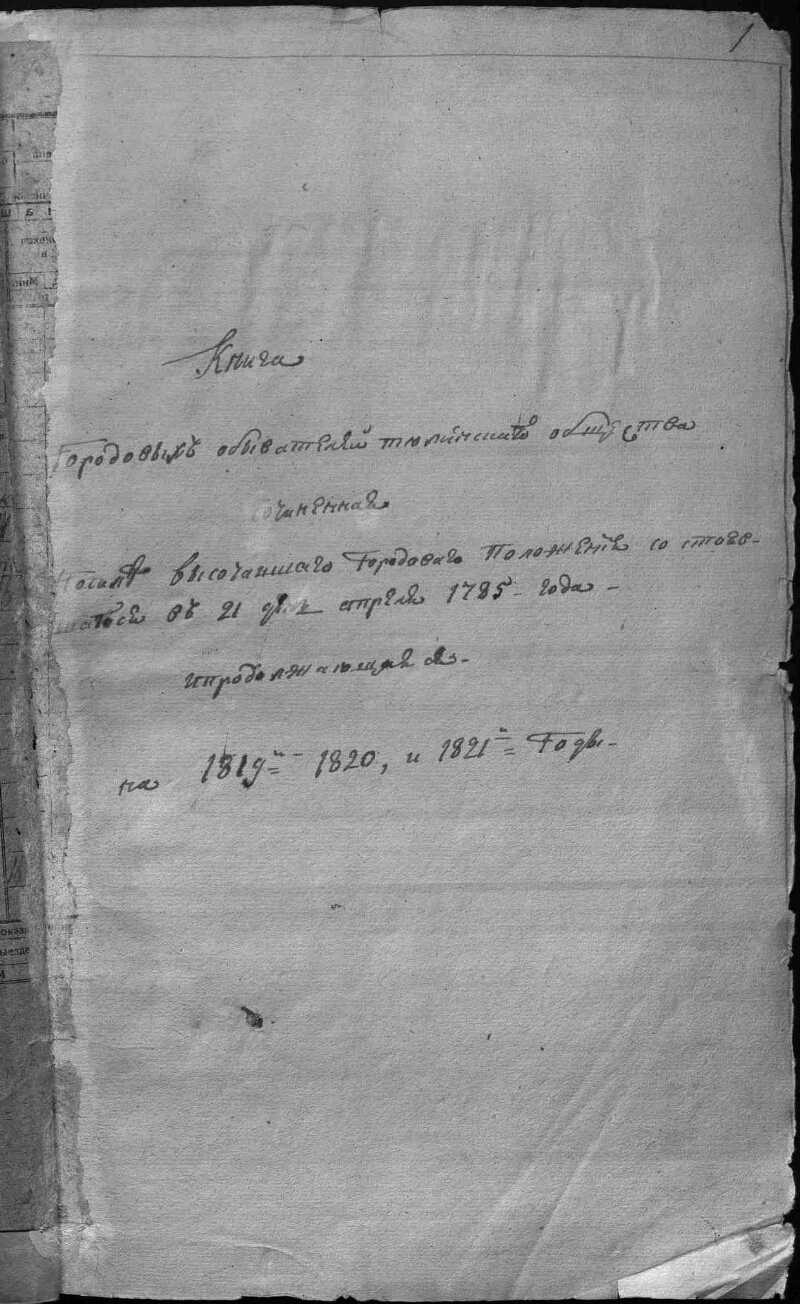 1
Книга
Городовыхъ обывателей тюменскаго общества
Сочиненная
После высочаишаго Городоваго Положения состояв-
въ 21 день апреля 1785 - года -
ипродолжающаяся -
на 1819й = 1820, и 1821й = Годы -